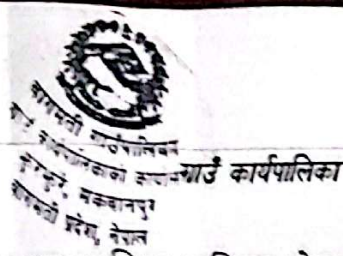 बागमती गाउँपालिका
गाउँ कार्यपालिकाको कार्यालय
मकवानपुर
बागमती प्रदेश, नेपाल
गाउँ कार्यपालिका